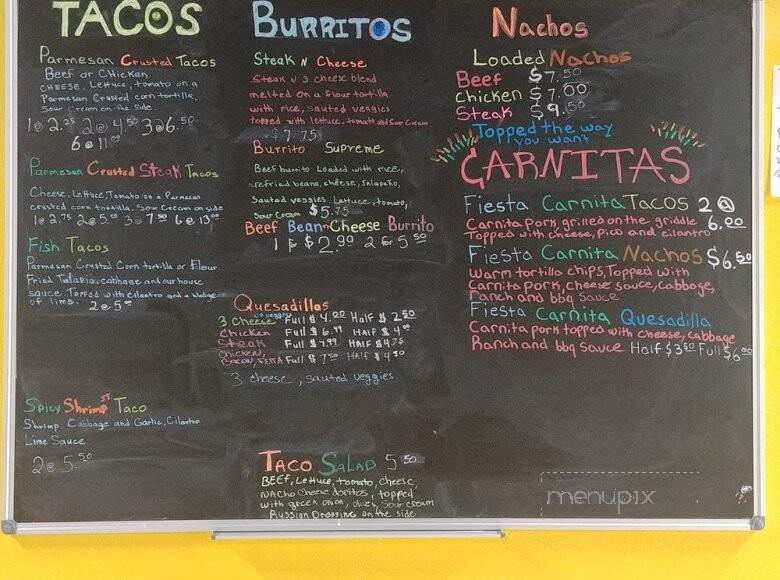 TACOS
Parmesan Crusted Tacos
Beef or Chicken
Cheese, Lettuce, tomato on a
Parmesan Crusted corn tortilla.
Sour Cream on the side
1@2.25 2@4.50 3@6.50
6@11.00
Parmesan Crusted Steak Tacos
Cheese, Lettuce, Tomato on a Parmesan
crusted corn tortilla, Sour Cream on side
1@2.75 2@5.00 3@7.50 6@13.00
Fish Tacos
Parmesan Crusted Corn tortilla or Flour
Fried Talapia, cabbage and our house
sauce. Topped with cilantro and a wedge
of lime. 2@5.00
Spicy Shrimp Taco
Shrimp Cabbage and Garlic, Cilantro
Lime Sauce
2@5.50
BURRITOS
Steak N Cheese
Steak n 3 cheese blend
melted on a flour tortilla
with rice, sauted veggies
topped with lettuce, tomato and Sour Cream
$7.75
Burrito Supreme
Beef burrito Loaded with rice,
refried beans, cheese, Jalapeño,
Sauted veggies. Lettuce, tomato,
Sour cream $5.75
Beef Bean n Cheese Burrito
1 for $2.99 2 for 5.50
Quesadillas
3 cheese no veggies Full $4.00 Half $2.50
Chicken Full $6.99 Half $4.00
Steak Full $7.99 Half $4.75
Chicken, Bacon, Feta Full $7.50 Half $4.50
3 cheese, sauted veggies
Taco Salad 5.50
BEEF, Lettuce, tomato, cheese,
Nacho Cheese doritos, topped
with green onion, olives, Sour cream
Russian Dressing on the side
Nachos
Loaded Nachos
Beef $7.50
Chicken $7.00
Steak $9.50
Topped the way
you want
CARNITAS
Fiesta Carnita Tacos 2@
Carnita Pork, grilled on the griddle 6.00
Topped with cheese, pico and cilantro
Fiesta Carnita Nachos $6.50
Warm tortilla chips, Topped with
Carnita pork, cheese sauce, cabbage,
Ranch and bbq Sauce
Fiesta Carnita Quesadilla
Carnita pork topped with cheese, cabbage
Ranch and bbq Sauce Half $3.50 Full $6.00
menupix